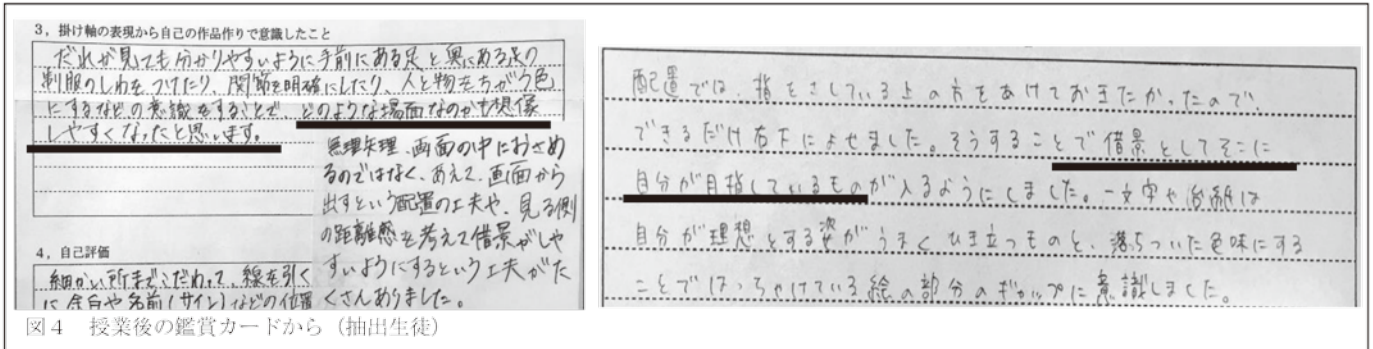 3, 掛け軸の表現から自己の作品作りで意識したこと
だれが見ても分かりやすいように手前にある足と奥にある足の
制服のしわをつけたり、関節を明確にしたり、人と物をちがう色
にするなどの意識をすることで どのような場面なのかも想像
しやすくなったと思います。
無理矢理、画面の中におさめ
るのではなく、あえて、画面から
出すという配置の工夫や、見る側
の距離感を考えて借景がしや
すいようにするという工夫がた
くさんありました。
4, 自己評価
細かい所までこだわって、線を引く
に余白や名前(サイン)などの位置
配置では、指をさしている上の方をあけておきたかったので、
できるだけ右下によせました。そうすることで借景としてそこに
自分が目指しているものが入るようにしました。一文字や
自分が理想とする姿がうまくひき立つものと、落ちついた色味にする
ことではっちゃけている絵の部分のギャップに意識しました。
図4 授業後の鑑賞カードから(抽出生徒)